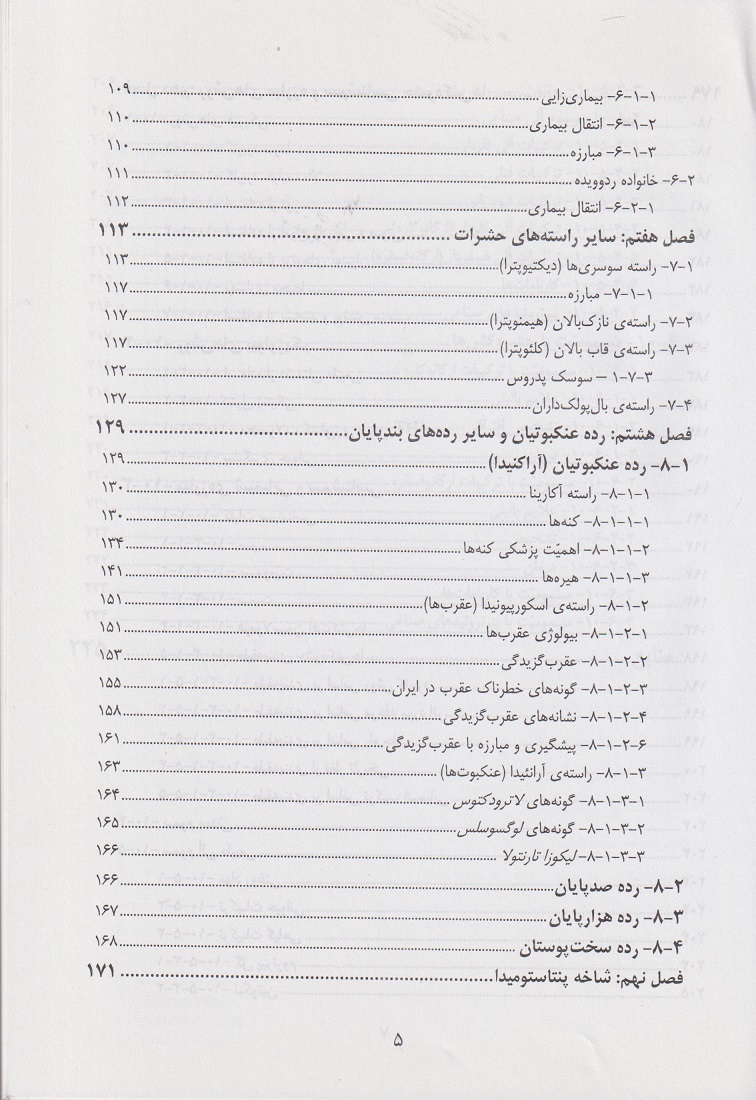 ۶-۱-۱- بیماری‌زایی ۱۰۹
۶-۱-۲- انتقال بیماری ۱۱۰
۶-۱-۳- مبارزه ۱۱۰
۶-۲- خانواده ردوویده ۱۱۱
۶-۲-۱- انتقال بیماری ۱۱۲
فصل هفتم: سایر راسته‌های حشرات ۱۱۳
۷-۱- راسته سوسری‌ها (دیکتیوپترا) ۱۱۳
۷-۱-۱- مبارزه ۱۱۷
۷-۲- راسته‌ی نازک‌بالان (هیمنوپترا) ۱۱۷
۷-۳- راسته‌ی قاب بالان (کلئوپترا) ۱۱۷
۷-۳-۱ – سوسک پدروس ۱۲۲
۷-۴- راسته‌ی بال‌پولک‌داران ۱۲۷
فصل هشتم: رده عنکبوتیان و سایر رده‌های بندپایان ۱۲۹
۸-۱- رده عنکبوتیان (آراکنیدا) ۱۲۹
۸-۱-۱- راسته آکارینا ۱۳۰
۸-۱-۱-۱- کنه‌ها ۱۳۰
۸-۱-۱-۲- اهمیّت پزشکی کنه‌ها ۱۳۴
۸-۱-۱-۳- هیره‌ها ۱۴۱
۸-۱-۲- راسته‌ی اسکورپیونیدا (عقرب‌ها) ۱۵۱
۸-۱-۲-۱- بیولوژی عقرب‌ها ۱۵۱
۸-۱-۲-۲- عقرب‌گزیدگی ۱۵۳
۸-۱-۲-۳- گونه‌های خطرناک عقرب در ایران ۱۵۵
۸-۱-۲-۴- نشانه‌های عقرب‌گزیدگی ۱۵۸
۸-۱-۲-۶- پیشگیری و مبارزه با عقرب‌گزیدگی ۱۶۱
۸-۱-۳- راسته‌ی آرانئیدا (عنکبوت‌ها) ۱۶۳
۸-۱-۳-۱- گونه‌های لاترودکتوس ۱۶۴
۸-۱-۳-۲- گونه‌های لوگسوسلس ۱۶۵
۸-۱-۳-۳- لیکوزا تارنتولا ۱۶۶
۸-۲- رده صدپایان ۱۶۶
۸-۳- رده هزارپایان ۱۶۷
۸-۴- رده سخت‌پوستان ۱۶۸
فصل نهم: شاخه پنتاستومیدا ۱۷۱
۵